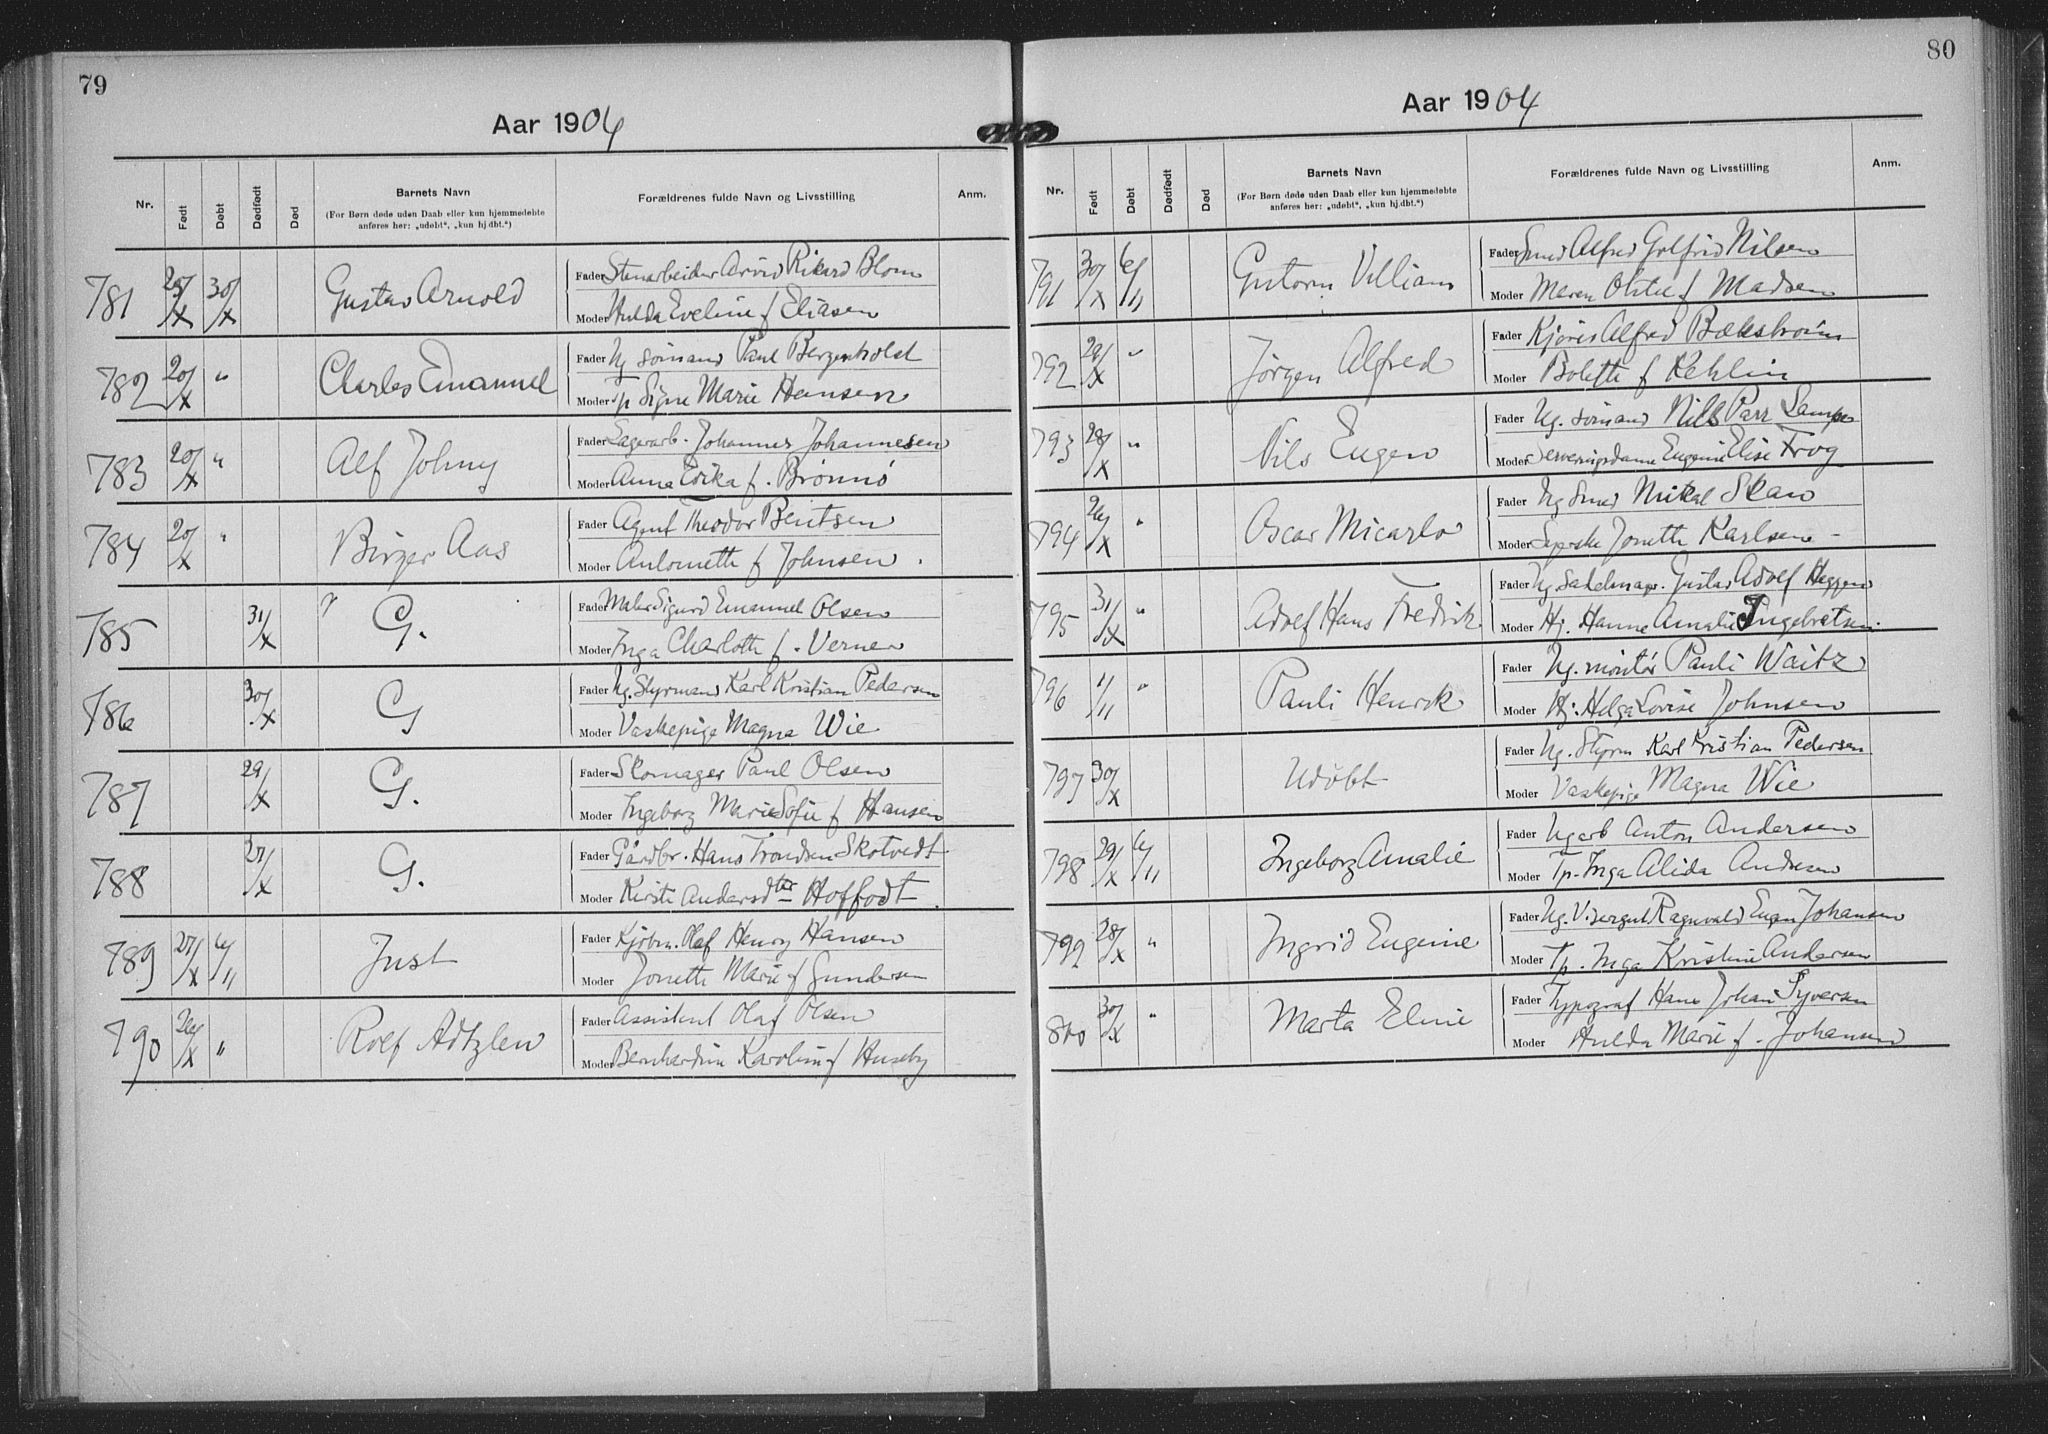 79
Aar 1904
Nr. Født Døbt Dødfødt Død Barnets Navn Forældrenes fulde Navn og Livsstilling Anm.
(For Børn døde uden Daab eller kun hjemmedøbte
anføres her: „udøbt“, „kun hj.dbt.“)
Fader Stenarbeider Arvid Rikard Blom
781 28/X 30/X Gustav Arnold
Moder Hulda Eveline f Eliasen
Fader Ug sømand Paul Bergenholst
782 20/X " Charles Emanuel
Moder Tp Signe Marie Hansen
Fader Lagerarb. Johannes Johannesen
783 20/X " Alf Johny
Moder Anna Erika f. Brønnø
Fader Agent Theodor Bentsen
784 20/X " Birger Aas
Moder Antonette f Johnsen.
Fader Maler Sigurd Emanuel Olsen
785 31/X G.
Moder Inga Charlotte f. Verner
Fader Ug. Styrmand Karl Kristian Pedersen
786 30/X G
Moder Vaskepige Magna Wie
Fader Skomager Paul Olsen
787 29/X G.
Moder Ingeborg Marie Sofie f Hansen
Fader Gårdbr. Hans Trondsen Skotvedt
788 27/X G.
Moder Kirsti Andersdtr Hoffodt.
Fader Kjøbm. Olaf Henry Hansen
789 27/X 6/11 Just
Moder Jonette Marie f Gundersen
Fader Assistent Olaf Olsen
790 26/X " Rolf Adtzlen
Moder Bernhardine Karoline f Huseby
80
Aar 1904
Nr. Født Døbt Dødfødt Død Barnets Navn Forældrenes fulde Navn og Livsstilling Anm.
(For Børn døde uden Daab eller kun hjemmedøbte
anføres her: „udøbt“, „kun hj.dbt.“)
Fader Smed Alfred Golfrid Nilsen
791 30/X 6/11 Gutorm Villiam
Moder Maren Olette f Madsen
Fader Kjører Alfred Bækstrøm
792 29/X " Jørgen Alfred
Moder Bolette f Rehlin
Fader Ug. sømand Nils Parr Lampe
793 28/X " Nils Eugen
Moder Serveringsdame Eugenie Elise Frog
Fader Ug Smed Mikal Skau
794 26/X " Oscar Micarlo
Moder Syerske Jonette Karlsen
Fader Ug Sadelmager. Gustav Adolf Heggen
795 31/X " Adolf Hans Fredrik
Moder Hj. Hanne Amalie Ingebretsen.
Fader Ug. montør Pauli Waitz
796 1/11 " Pauli Henrik
Moder Hj. Helga Lovise Johnsen
Fader Ug. Styrm Karl Kristian Pedersen
797 30/X Udøbt
Moder Vaskepige Magna Wie
Fader Ug arb Anton Andersen
798 29/X 6/11 Ingeborg Amalie
Moder Tp. Inga Alida Andresen
Fader Ug. V. sergent Ragnvald Eugen Johansen
799 28/X " Ingrid Eugenie
Moder Tp. Inga Kristine Andersen
Fader Typograf Hans Johan Syversen
800 30/X " Marta Eline
Moder Hulda Marie f. Johansen